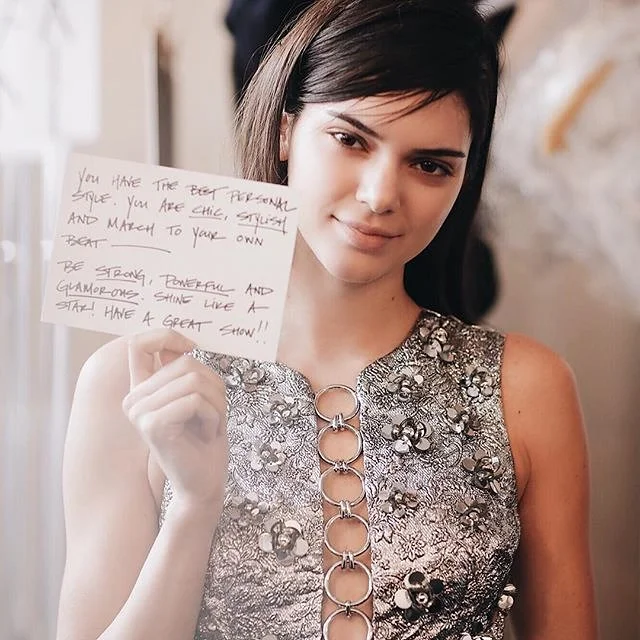 YOU HAVE THE BEST PERSONAL
STYLE. YOU ARE CHIC, STYLISH
AND MARCH TO YOUR OWN
BEAT
BE STRONG, POWERFUL AND
GLAMOROUS. SHINE LIKE A
STAR! HAVE A GREAT SHOW!!